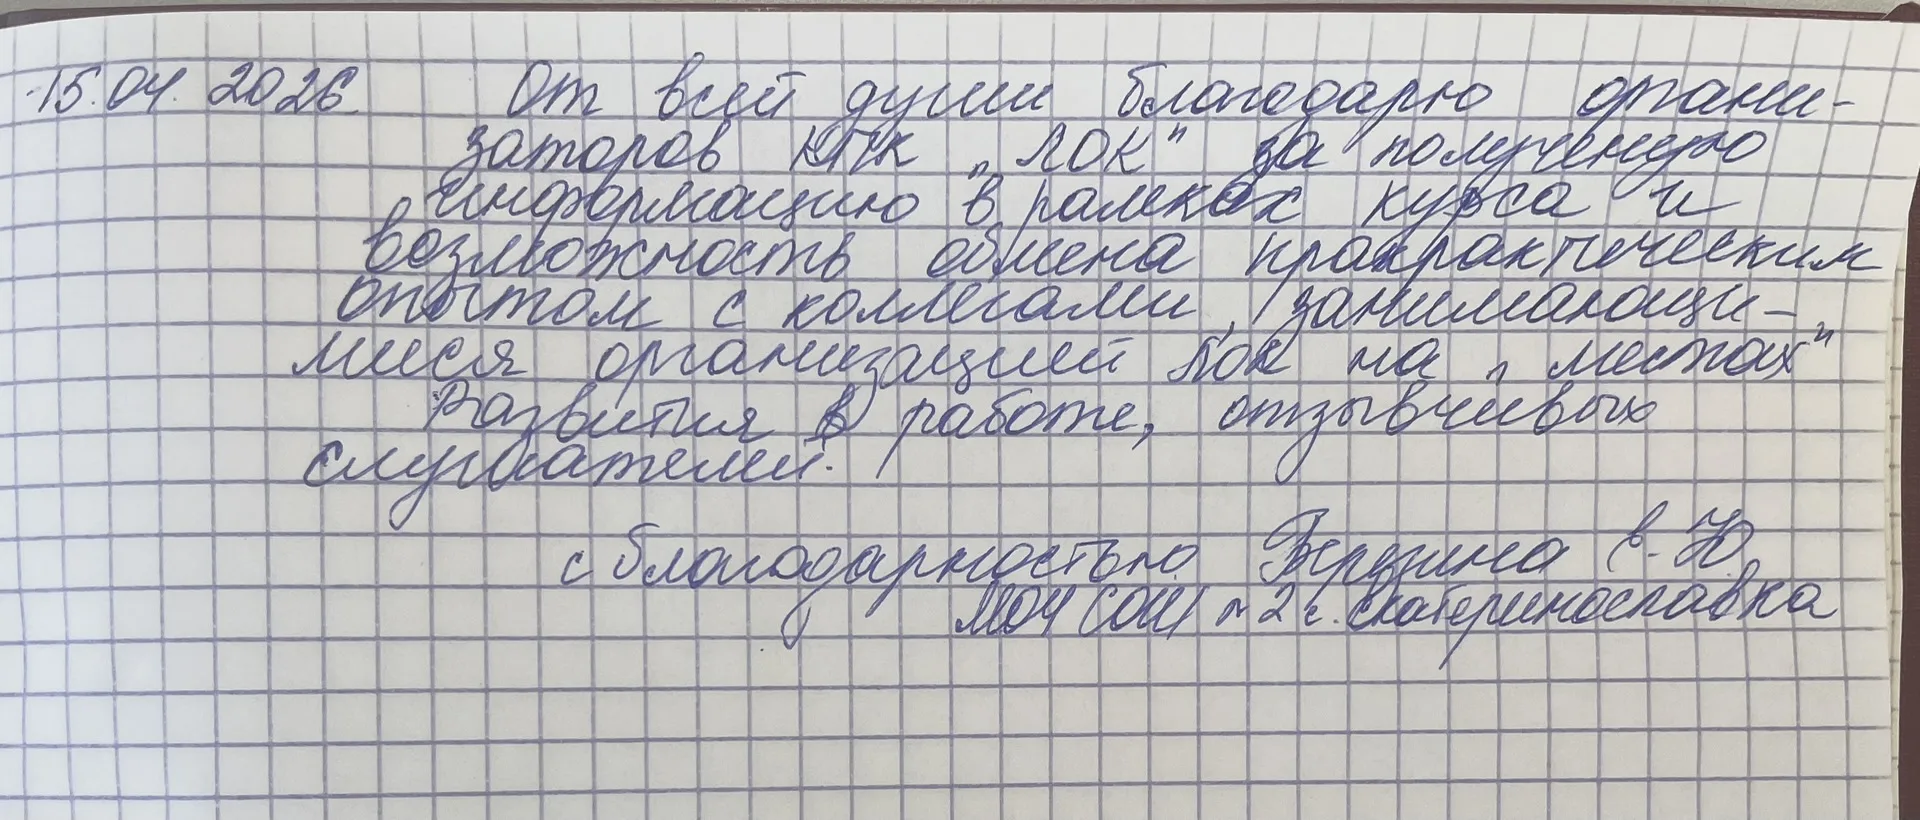 15.04.2026 От всей души благодарю органи-
заторов КПК „ЛОК" за полученную
информацию в рамках курса и
возможность обмена практическим
опытом с коллегами, занимающи-
мися организацией ЛОК на „местах"
Развития в работе, отзывчивых
слушателей.
с благодарностью Е.Ю.
МОЧ СОШ №2 с. Екатеринославка